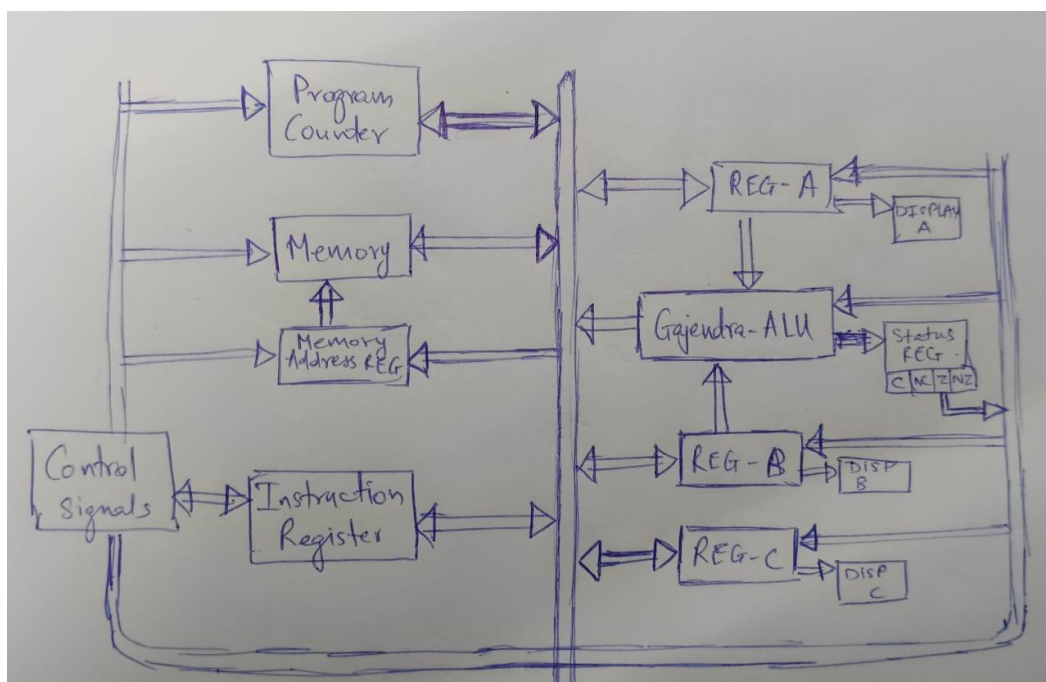 Program
Counder
Memory
Memory
Address REG
Control
Signals
Instraction
Register
REG-A
DISPLAY
A
Gajendra-ALU
Status
REG.
C NC Z NZ
REG-B
DISP
B
REG-C
DISP
C